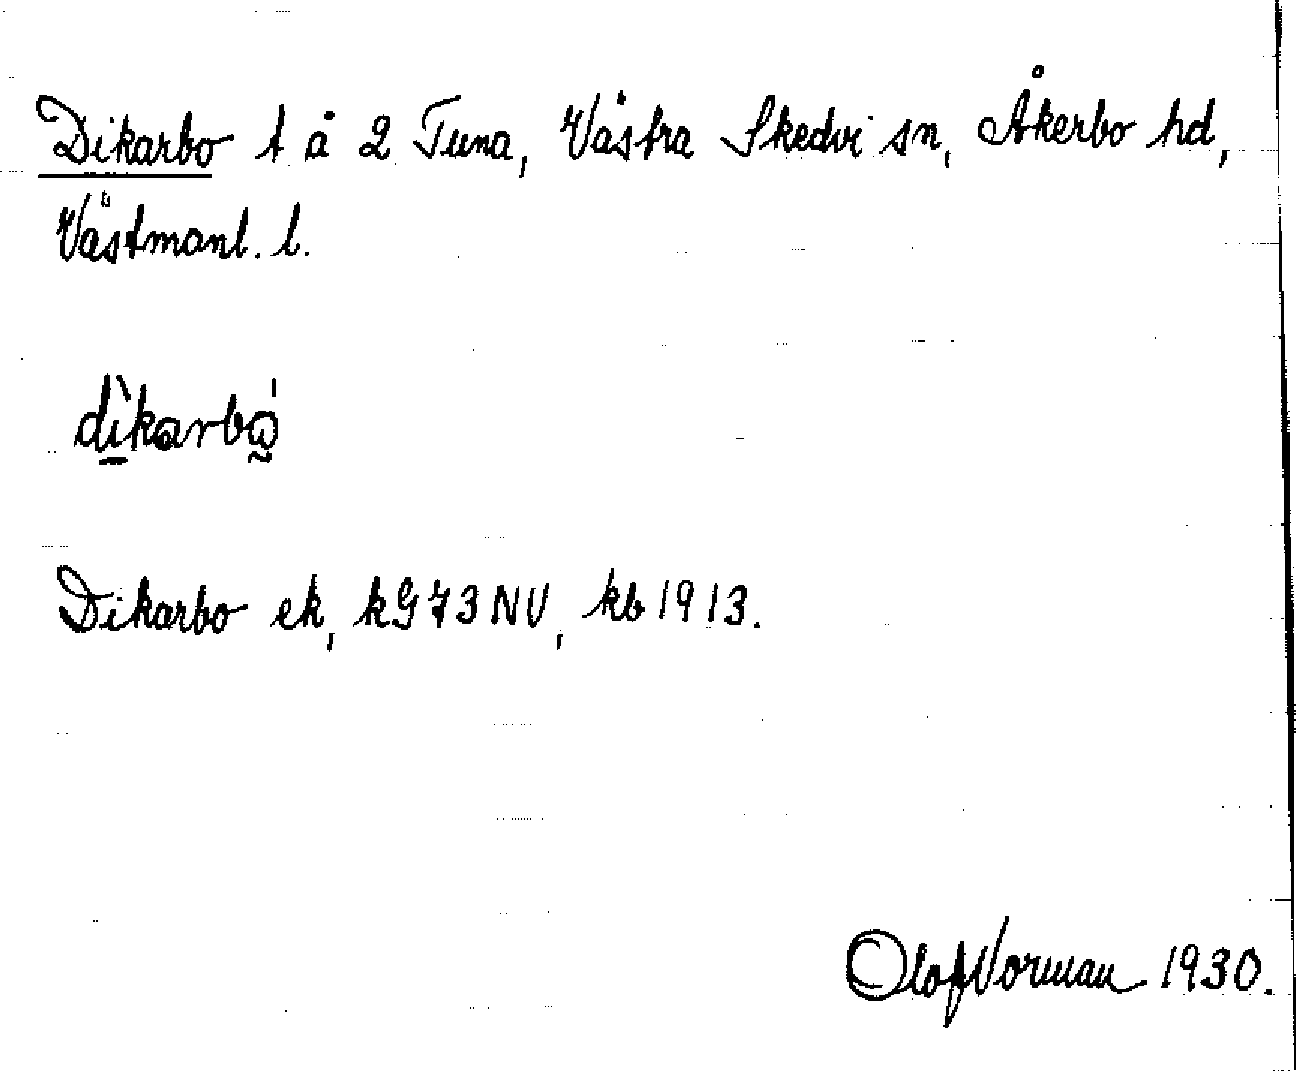 Dikarbo t å 2 Tuna, Västra Skedvi sn, Åkerbo hd,
Västmanl. l.
dìkarbo̰̍
Dikarbo ek, kG73NV, kb 1913.
Olof Norman 1930.